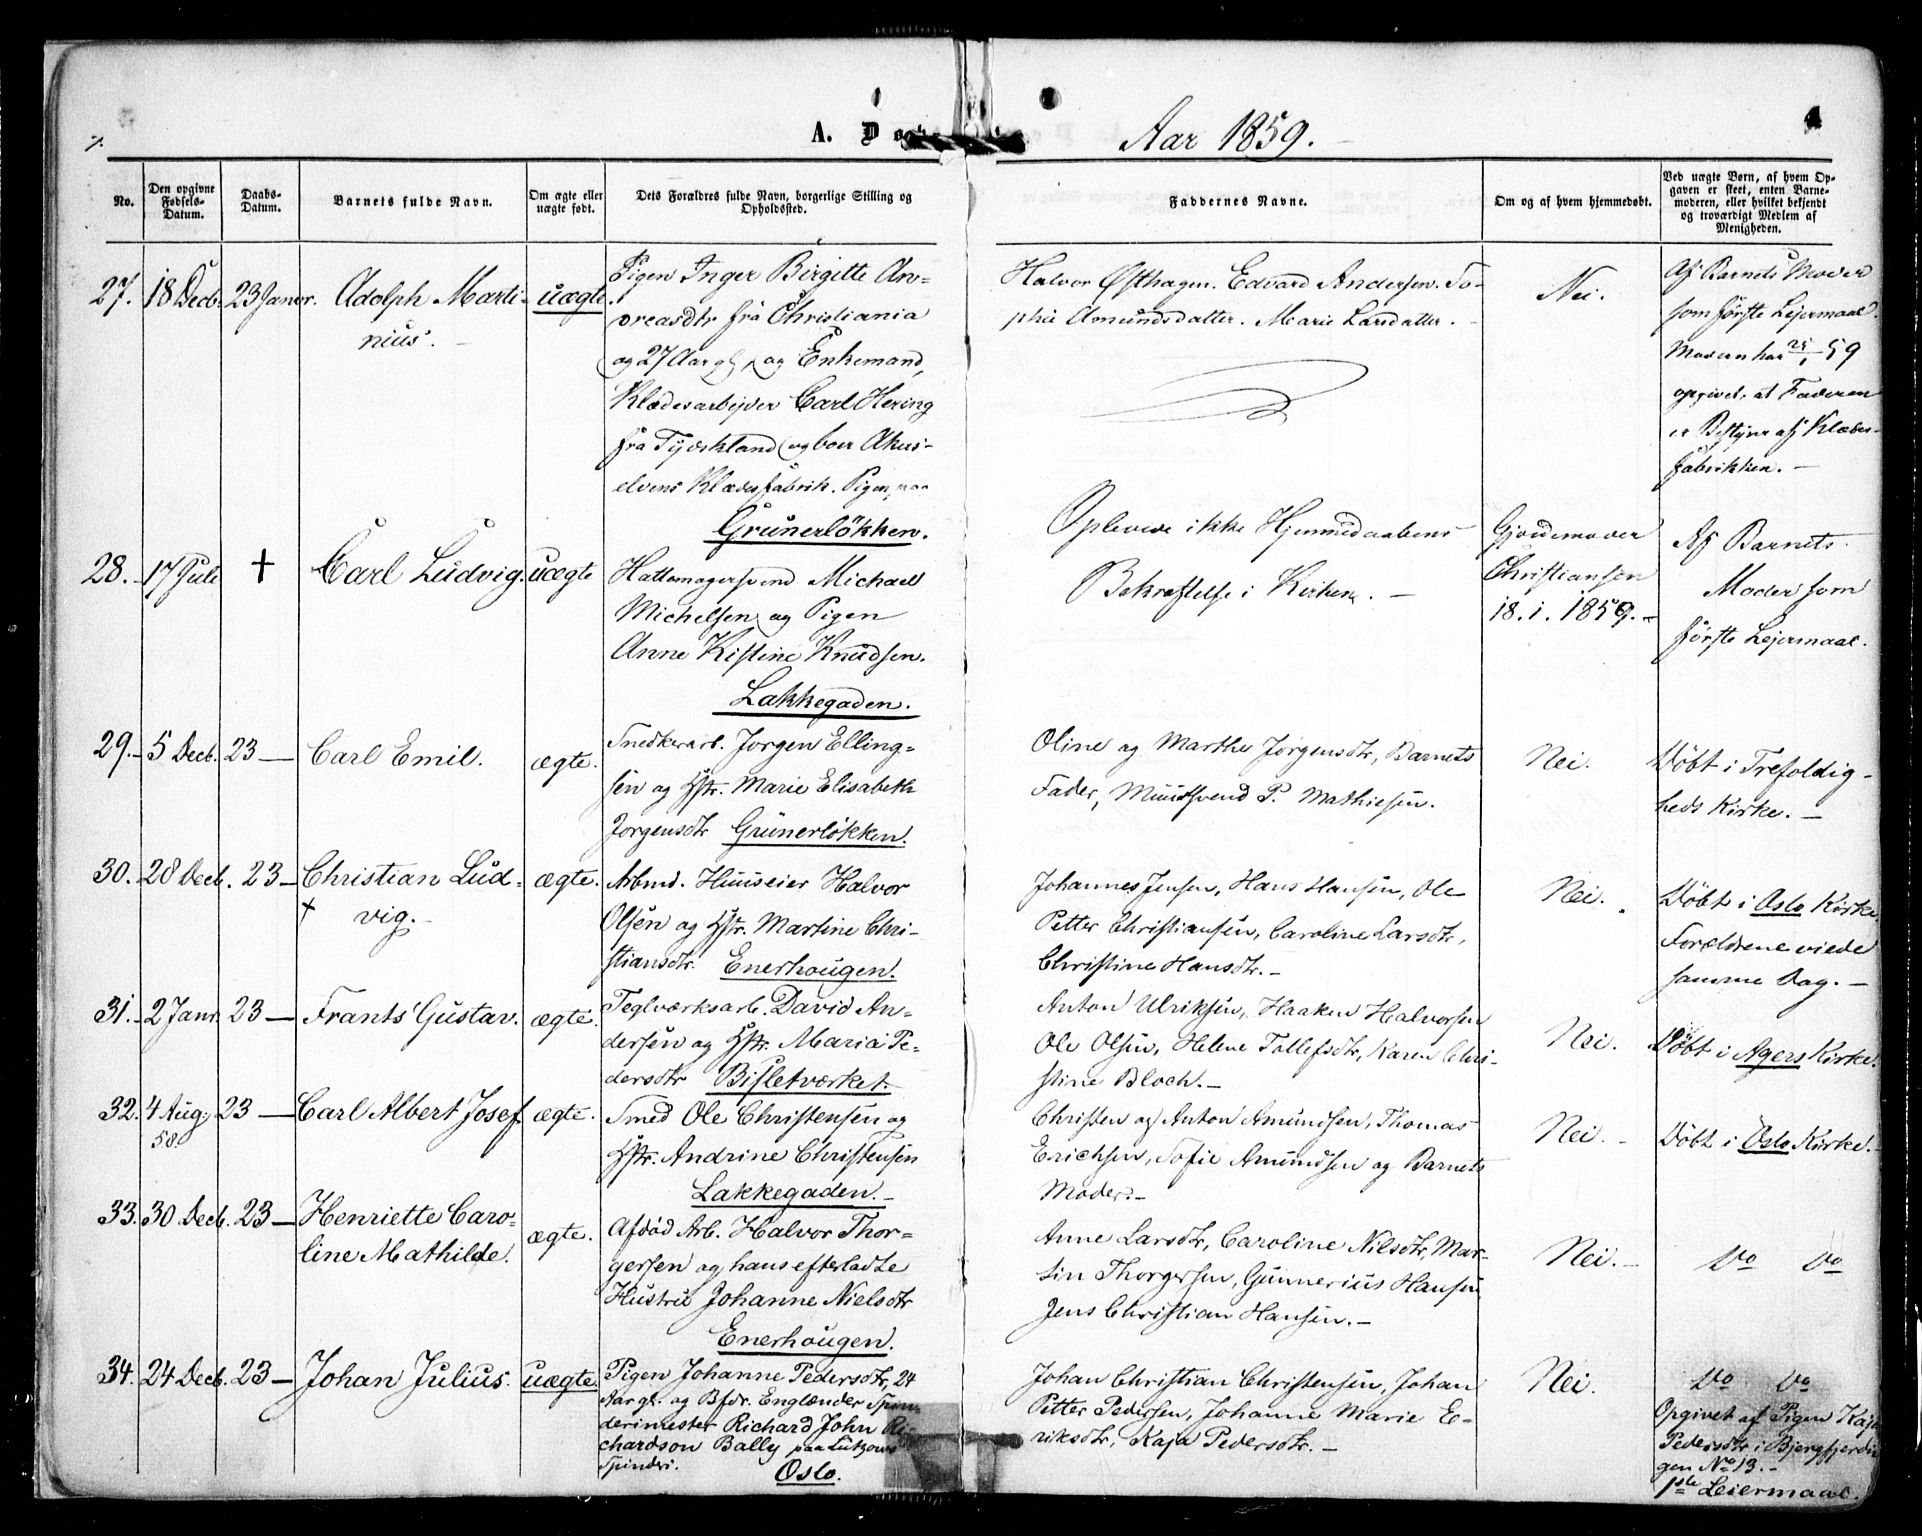 7.
A. Døbte
Aar 1859.
4
No.
Den opgivne Fødsels-Datum.
Daabs-Datum.
Barnets fulde Navn.
Om ægte eller uægte født.
Dets Forældres fulde Navn, borgerlige Stilling og Opholdssted.
Faddernes Navne.
Om og af hvem hjemmedøbt.
Ved uægte Børn, af hvem Opgaven er skeet, enten Barnemoderen, eller hvilket bekjendt og troværdigt Medlem af Menigheden.
27. 18 Decb. 23 Januar. Adolph Marti-
nius.
uægte.
Pigen Inger Birgitte An-
dreasdtr fra Christiania
og 27 Aar gl, og Enkemand,
Klædesarbejder Carl Hering
fra Tydskland og boer Akers-
elvens Klædesfabrik. Pigen paa
Grünerløkken.
Halvor Østhagen. Edvard Andersen. So-
phie Amundsdatter. Marie Larsdatter.
Nei.
Af Barnets Moder
som første Lejermaal.
Moderen har 25/1 59
opgivet, at Faderen
er Bestyrer af Klædes-
fabrikken.
28. 17 Juli † Carl Ludvig. uægte
Hattemagersvend Michael
Michelsen og Pigen
Anne Kistine Knudsen.
Lakkegaden.
Oplevede ikke Hjemmedaabens
Bekræftelse i Kirken.
Gjordemoder
Christiansen
18. 1. 1859.
Af Barnets
Moder som
første Lejermaal.
29. 5 Decb. 23 — Carl Emil. ægte.
Snedkerarb. Jørgen Elling-
sen og Hstr. Marie Elisabeth
Jørgensdtr Grünerløkken.
Oline og Marthe Jørgensdtr, Barnets
Fader, Muursvend P. Mathiesen.
Nei.
Døbt i Trefoldig-
heds Kirke.
30. 28 Decb. 23 — Christian Lud-
† vig.
ægte.
Arbmd. Huuseier Halvor
Olsen og Hstr. Martine Chri-
stiansdtr. Enerhougen.
Johannes Jensen, Hans Hansen, Ole
Petter Christiansen, Caroline Larsdtr,
Christine Hansdtr.
Nei.
Døbt i Oslo Kirke.
Forældrene viede
samme Dag.
31. 2 Janr. 23 — Frants Gustav. ægte.
Teglværksarb. David An-
dersen og Hstr. Maria Pe-
dersdtr Bisletværket.
Anton Ulriksen, Haaken Halvorsen
Ole Olsen, Helene Tollefsdtr, Karen Chri-
stine Bloch.
Nei.
Døbt i Agers Kirke.
32. 4 Aug. 23 — Carl Albert Josef. ægte.
58.
Smed Ole Christensen og
Hstr. Andrine Christensen
Lakkegaden.
Christen og Anton Amundsen, Thomas
Erichsen, Sofie Amundsen og Barnets
Moder.
Nei.
Døbt i Oslo Kirke.
33. 30 Decb. 23 — Henriette Caro-
line Mathilde.
ægte.
Afdød Arb. Halvor Thor-
gersen og hans efterladte
Hustru Johanne Nielsdtr
Enerhougen.
Anne Larsdtr, Caroline Nilsdtr, Mar-
tin Thorgersen, Gunnerius Hansen
Jens Christian Hansen.
Nei.
Do Do
34. 24 Decb. 23 — Johan Julius. uægte.
Pigen Johanne Pedersdtr, 24
Aar gl. og Bfdr. Englænder Spin-
derimester Richard John Ri-
chardson Bally paa Lützows
Spinderi.
Oslo.
Johan Christian Christensen, Johan
Petter Pedersen, Johanne Marie E-
riksdtr, Kaja Pedersdtr.
Nei.
Do Do
Opgivet af Pigen Kaja
Pedersdtr i Bjergfjerdin-
gen No 13.
1ste Leiermaal.